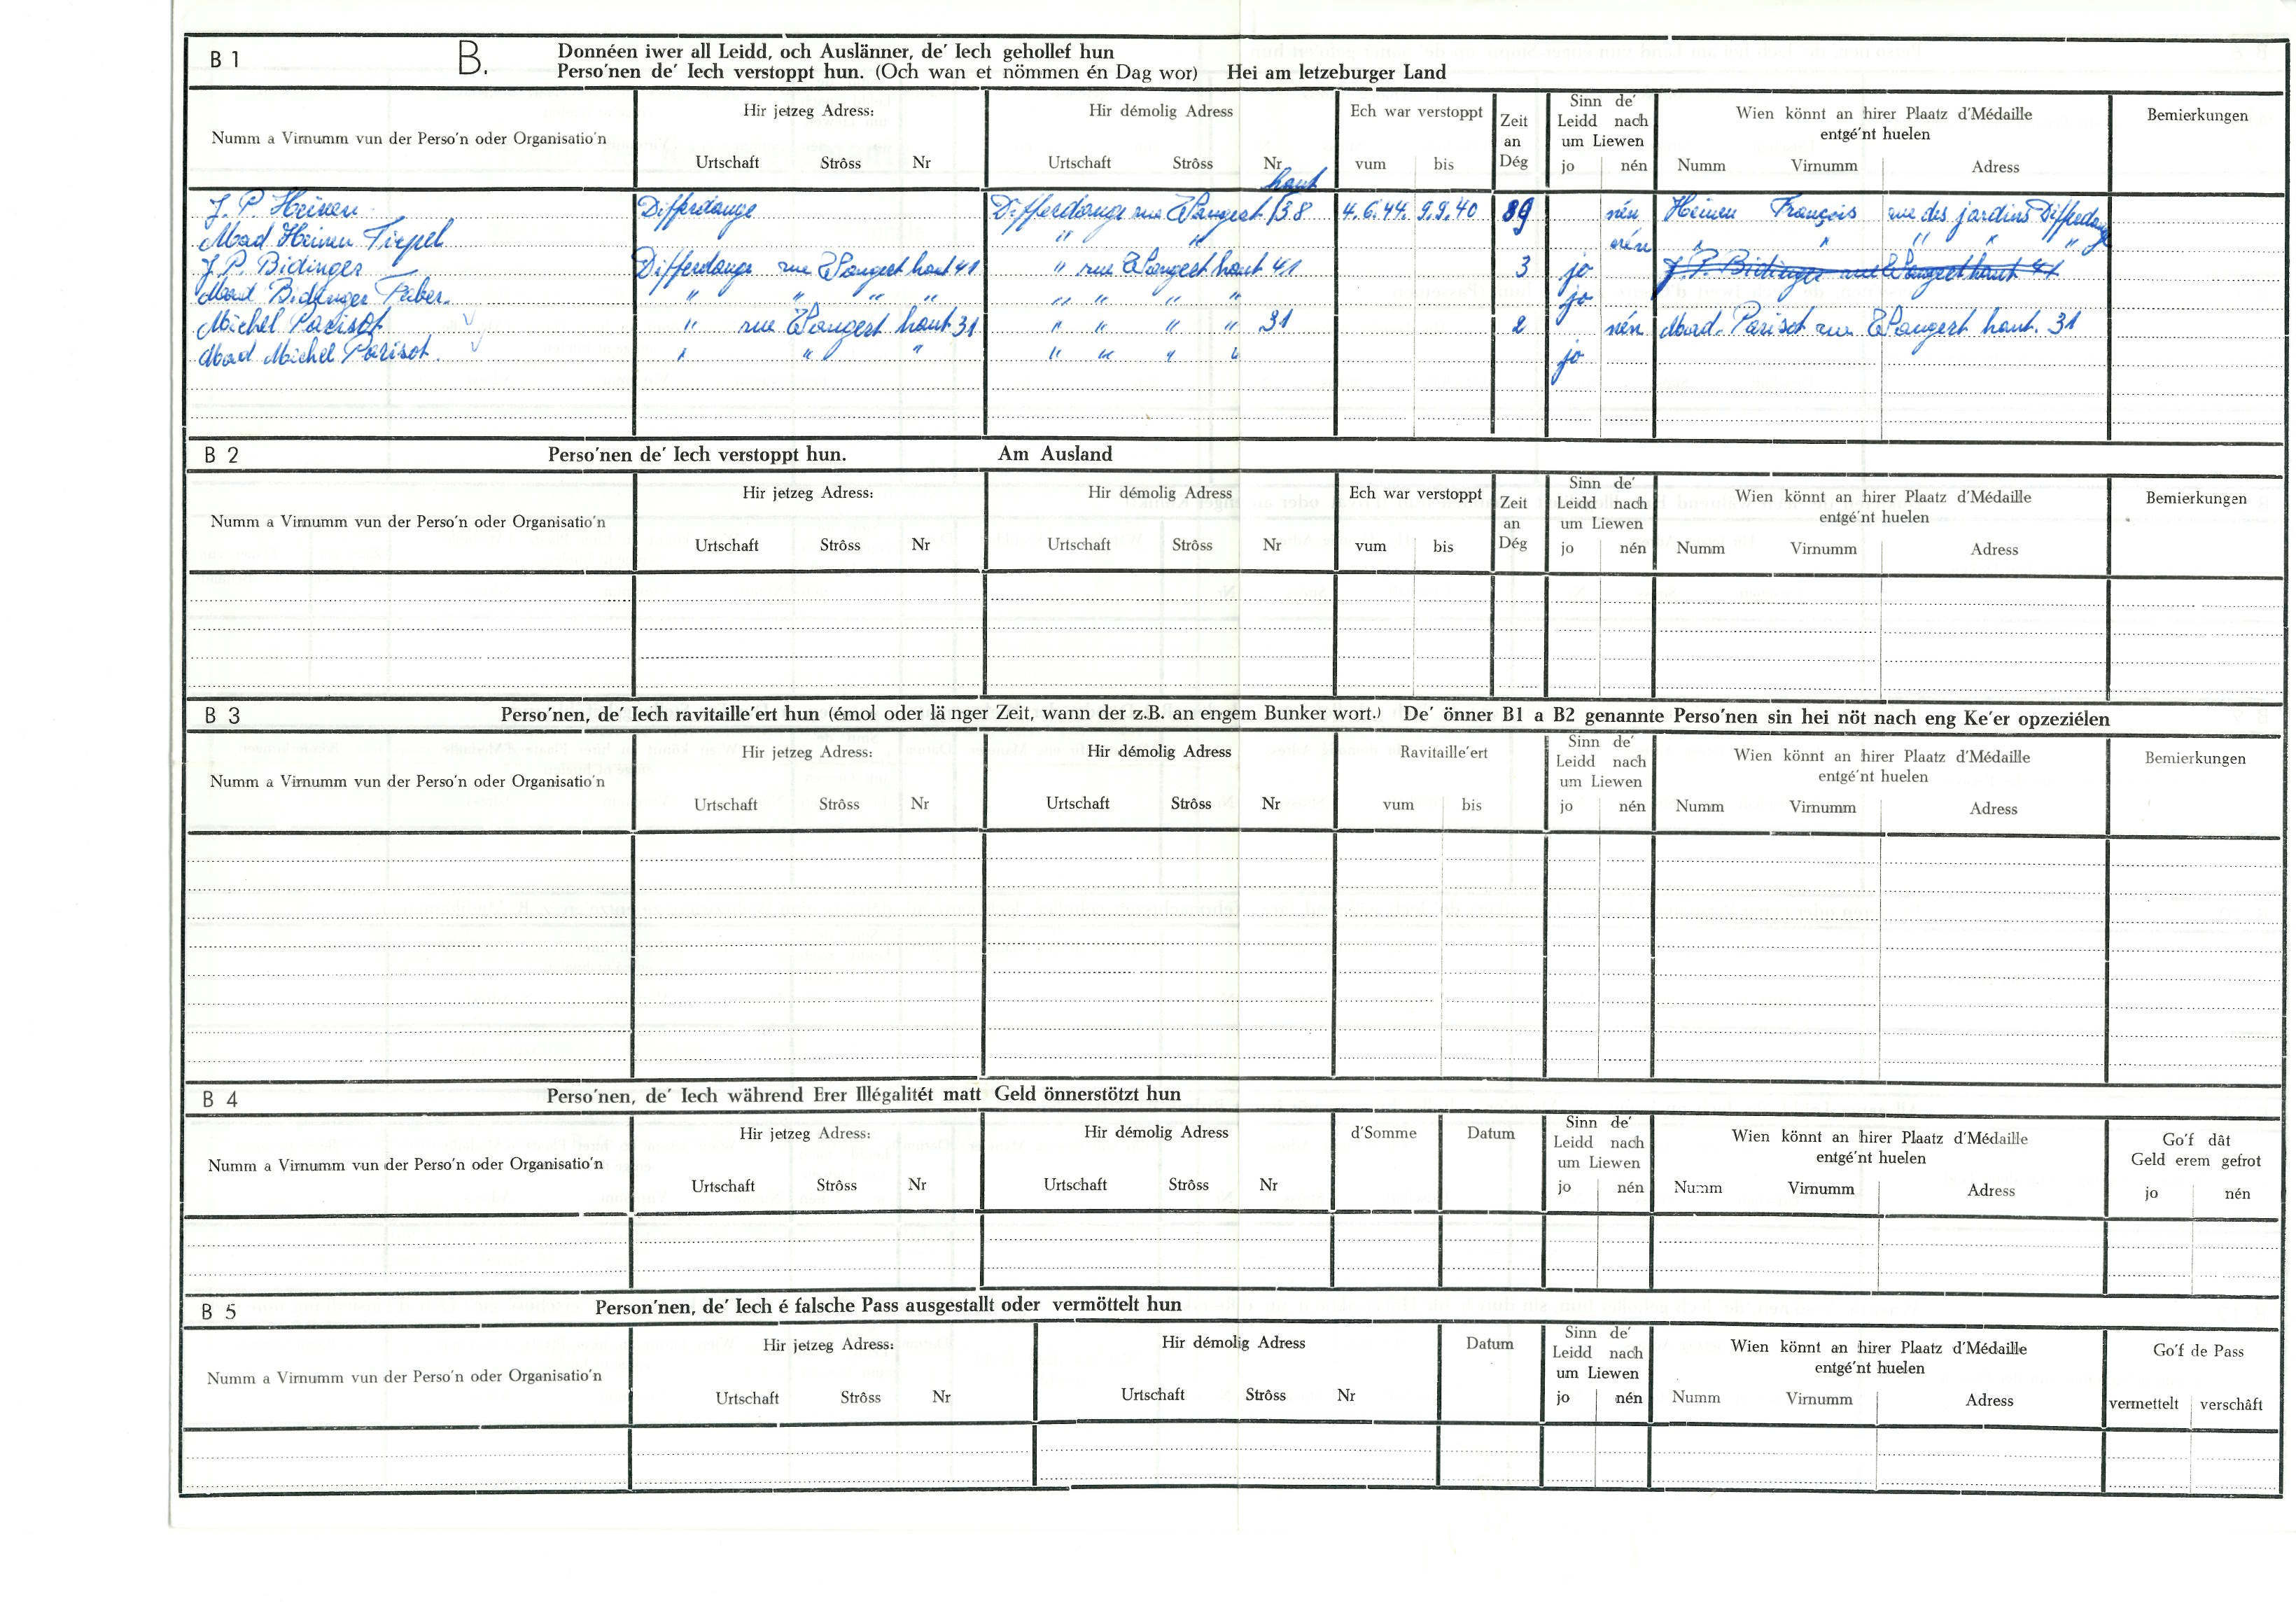 B 1 B. Donnéen iwer all Leidd, och Auslänner, de' Iech gehollef hun
Perso'nen de' Iech verstoppt hun. (Och wan et nömmen én Dag wor) Hei am letzeburger Land
Numm a Virnumm vun der Perso'n oder Organisatio'n Hir jetzeg Adress: Hir démolig Adress Ech war verstoppt Zeit an Dég Sinn de' Leidd nach um Liewen Wien könnt an hirer Plaatz d'Médaille entgé'nt huelen Bemierkungen
Urtschaft Strôss Nr Urtschaft Strôss Nr vum bis jo nén Numm Virnumm Adress
haut
J. P. Heinen Differdange Differdange rue Wangert 38 4.6.44. 9.9.40 89 nén Heinen François rue des jardins Differdange
Mad Heinen Tiepel " " nén " " " " "
J. P. Bidinger Differdange rue Wangert haut 41 " rue Wangert haut 41 3 jo J. P. Bidinger rue Wangert haut 41
Mad Bidinger Faber. " " " " " " " " jo
Michel Parisot " rue Wangert haut 31 " " " " 31 2 nén Mad. Parisot rue Wangert haut. 31
Mad Michel Parisot. " " " " " " " jo
B 2 Perso'nen de' Iech verstoppt hun. Am Ausland
Numm a Virnumm vun der Perso'n oder Organisatio'n Hir jetzeg Adress: Hir démolig Adress Ech war verstoppt Zeit an Dég Sinn de' Leidd nach um Liewen Wien könnt an hirer Plaatz d'Médaille entgé'nt huelen Bemierkungen
Urtschaft Strôss Nr Urtschaft Strôss Nr vum bis jo nén Numm Virnumm Adress
B 3 Perso'nen, de' Iech ravitaille'ert hun (émol oder lä nger Zeit, wann der z.B. an engem Bunker wort.) De' önner B1 a B2 genannte Perso'nen sin hei nöt nach eng Ke'er opzeziélen
Numm a Virnumm vun der Perso'n oder Organisatio'n Hir jetzeg Adress: Hir démolig Adress Ravitaille'ert Sinn de' Leidd nach um Liewen Wien könnt an hirer Plaatz d'Médaille entgé'nt huelen Bemierkungen
Urtschaft Strôss Nr Urtschaft Strôss Nr vum bis jo nén Numm Virnumm Adress
B 4 Perso'nen, de' Iech während Erer Illégalitét matt Geld önnerstötzt hun
Numm a Virnumm vun der Perso'n oder Organisatio'n Hir jetzeg Adress: Hir démolig Adress d'Somme Datum Sinn de' Leidd nach um Liewen Wien könnt an hirer Plaatz d'Médaille entgé'nt huelen Go'f dât Geld erem gefrot
Urtschaft Strôss Nr Urtschaft Strôss Nr jo nén Numm Virnumm Adress jo nén
B 5 Person'nen, de' Iech é falsche Pass ausgestallt oder vermöttelt hun
Numm a Virnumm vun der Perso'n oder Organisatio'n Hir jetzeg Adress: Hir démolig Adress Datum Sinn de' Leidd nach um Liewen Wien könnt an hirer Plaatz d'Médaille entgé'nt huelen Go'f de Pass
Urtschaft Strôss Nr Urtschaft Strôss Nr jo nén Numm Virnumm Adress vermettelt verschâft